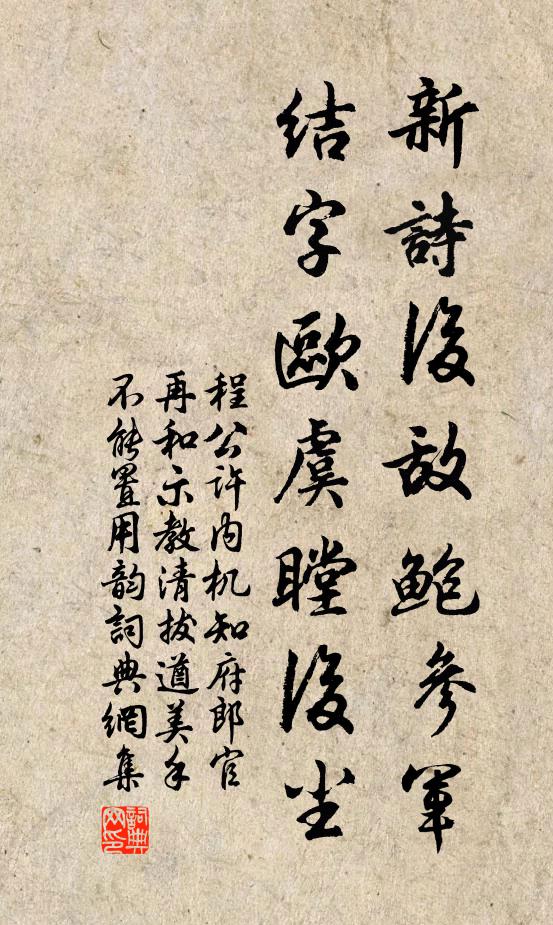 新詩後敵鮑參軍
結字歐虞瞠後尘
程公許内机知府郎官
再和示教清拔遒美手
不能置用韵詞典網集
詞典网印